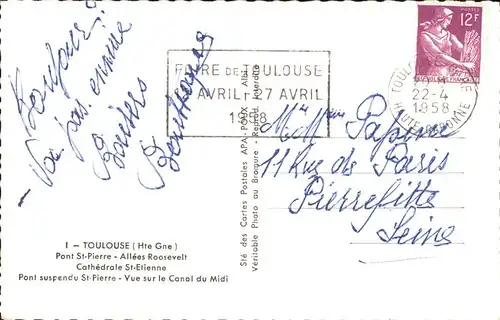 Bonjour
Baisers
FOIRE DE TOULOUSE
AVRIL - 27 AVRIL
1958
TOULOUSE
22-4
1958
HAUTE GARONNE
POSTES
12F
Sté des Cartes Postales APA-POUX - Albi
Véritable Photo au Bromure - Reprod. Interdite
Papine
11 Rue de Paris
Pierrefitte
Seine
1 — TOULOUSE (Hte Gne)
Pont St-Pierre - Allées Roosevelt
Cathédrale St-Etienne
Pont suspendu St-Pierre - Vue sur le Canal du Midi